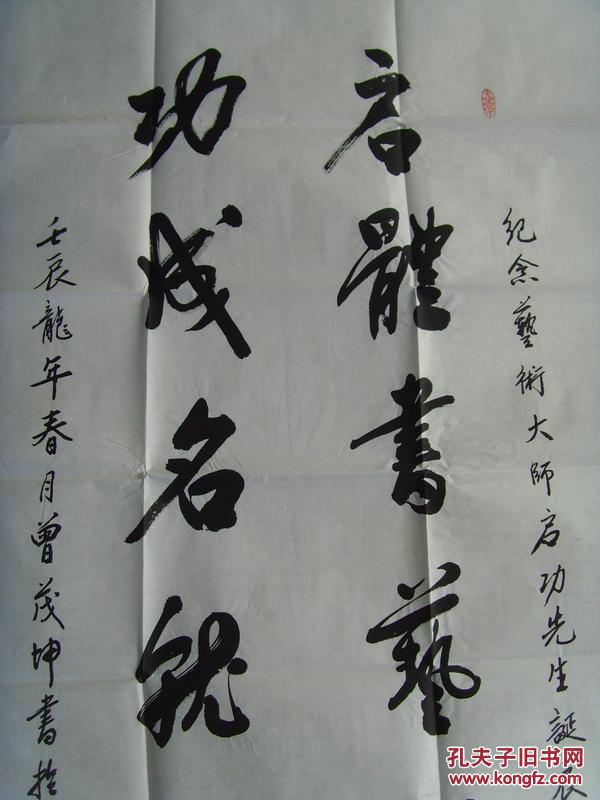 纪念藝術大師启功先生誕辰
启體書藝
功成名就
壬辰龍年春月曾茂坤書於
孔夫子旧书网
www.kongfz.com